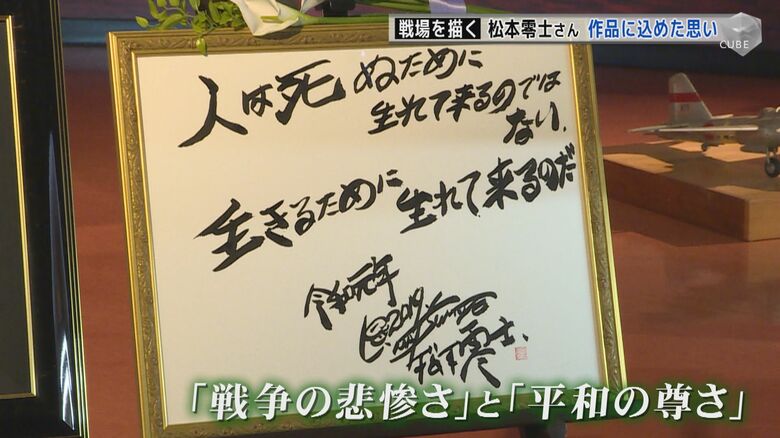 戦場を描く 松本零士さん 作品に込めた思い
CUBE
人は死ぬために
生れて来るのでは
ない.
生きるために生れて来るのだ
令和元年
2019
松本零士.
「戦争の悲惨さ」と「平和の尊さ」